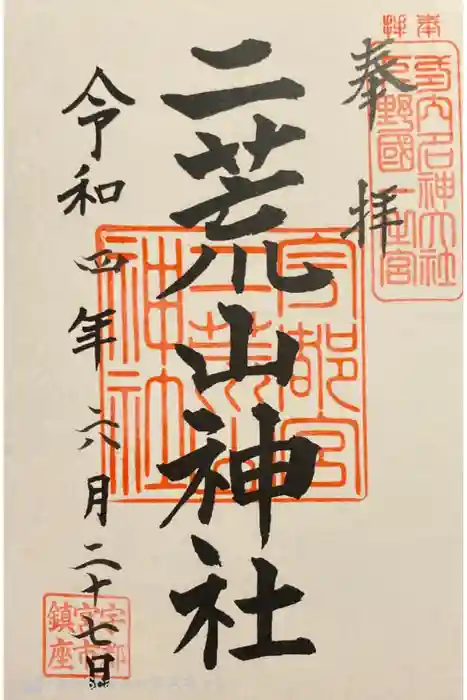 奉拝
延喜式内名神大社
下野國一之宮
奉拝
二荒山神社
宇都宮
二荒山
神社
令和四年六月二十七日
宇都
宮市
鎮座